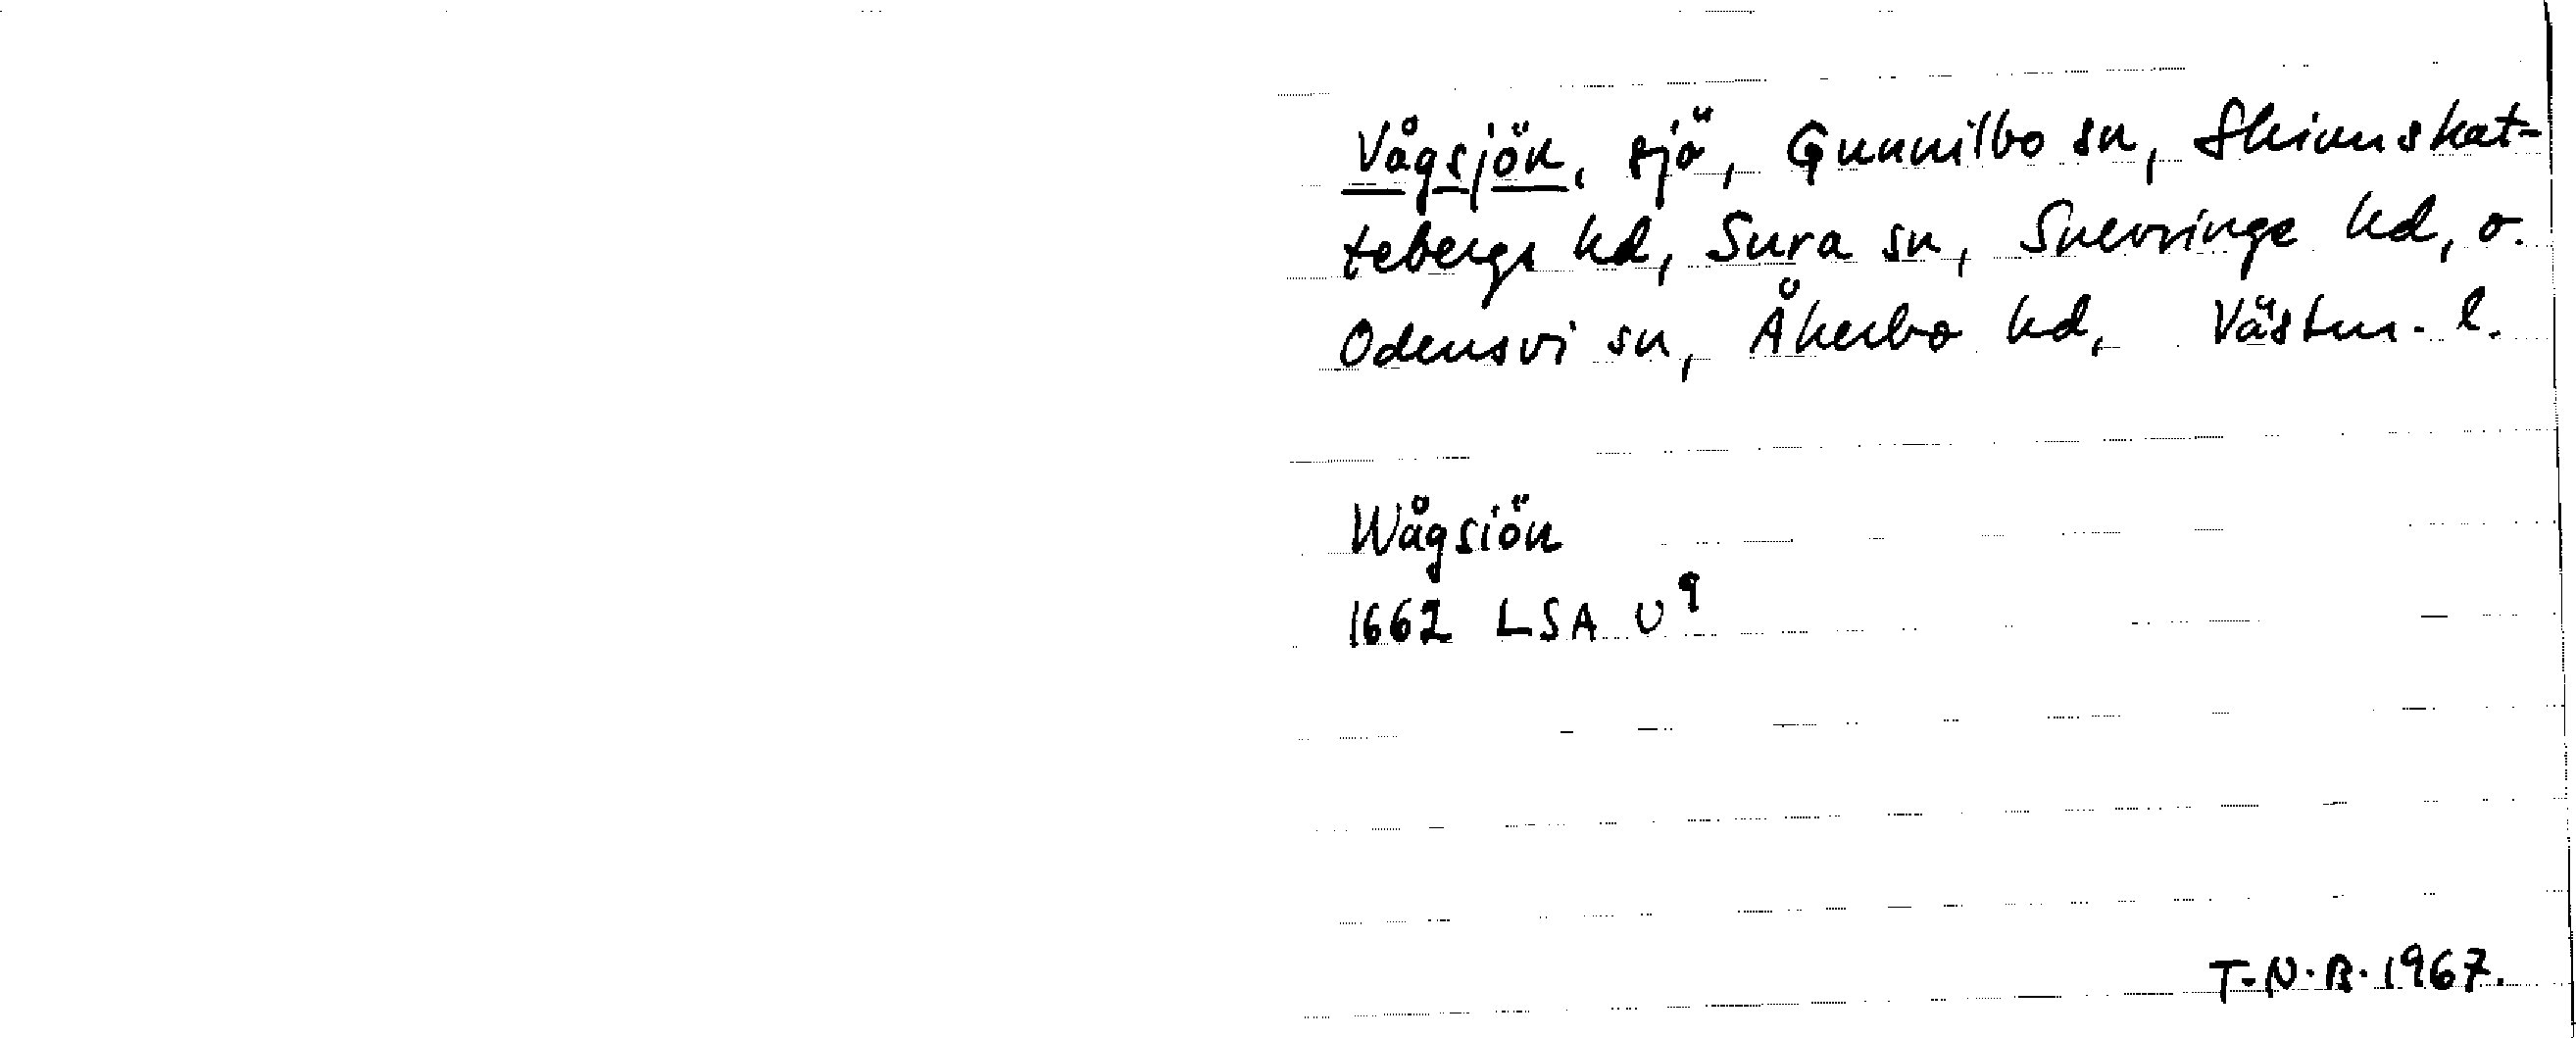 Vågsjön, sjö, Gunnilbo sn, Skinnskat-
tebergs hd, Sura sn, Snevringe hd, o.
Odensvi sn, Åkerbo hd, Västm. l.
Wågsiön
1662 LSA U⁹
T.N.B. 1967.